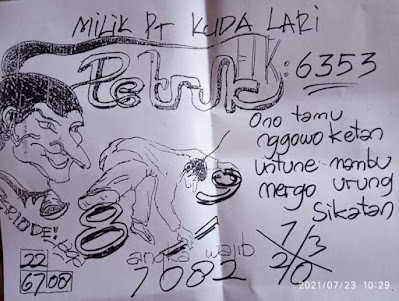 MILIK PT KUDA LARI
Petruk
HK: 6353
Ono tamu
nggowo ketan
untune mambu
mergo urung
Sikatan
PRIODE:
angka wajib
7082
22
67 08
7 3
2 0
2021/07/23 10:29